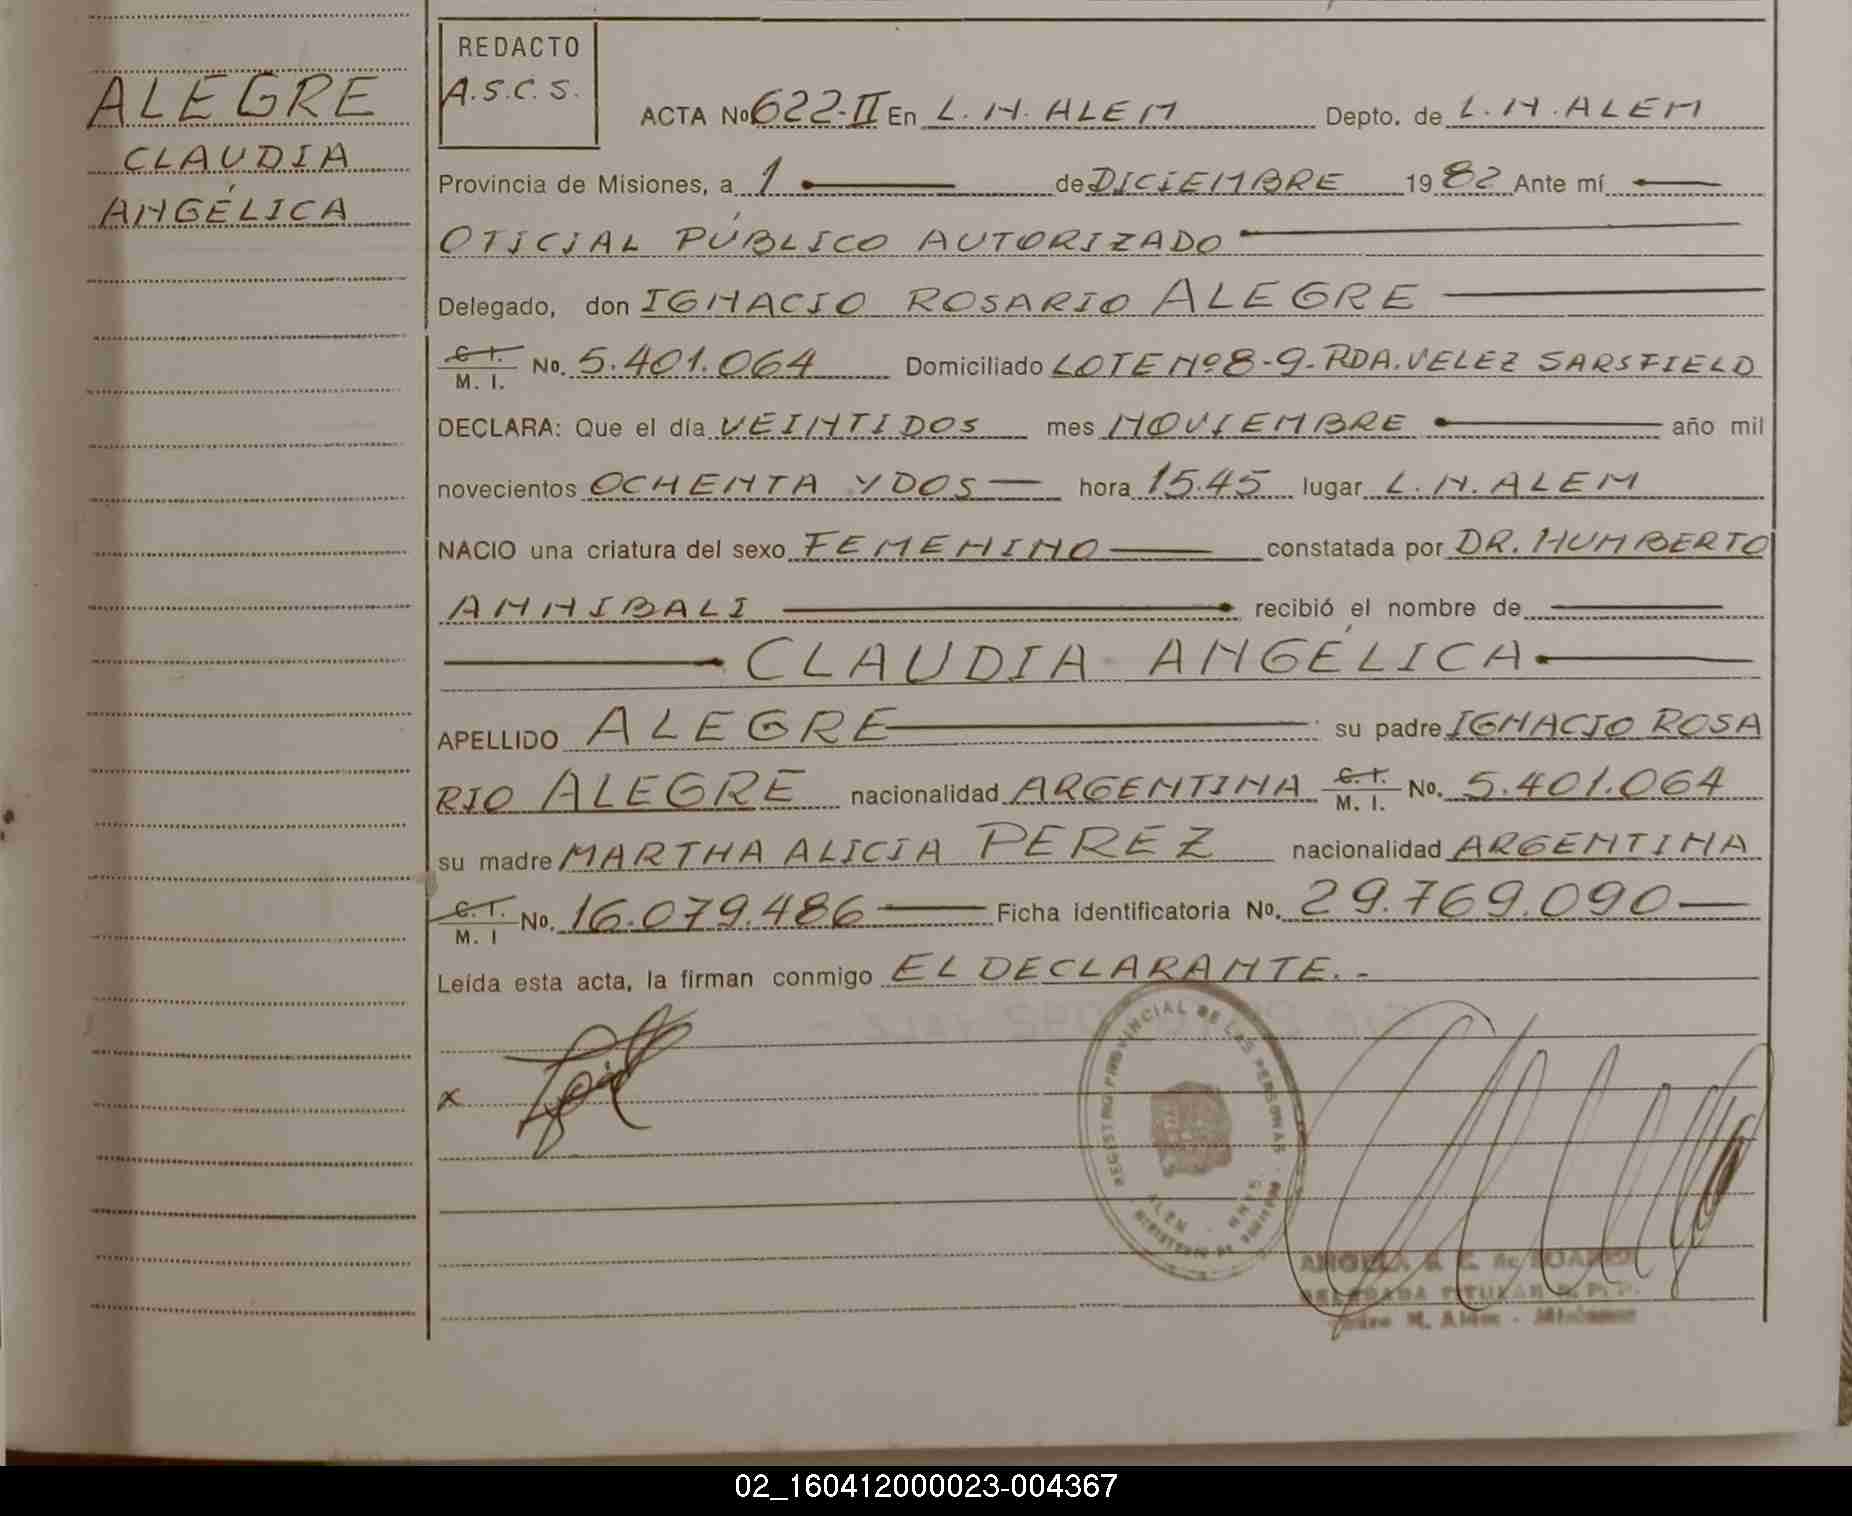 ALEGRE
CLAUDIA
ANGÉLICA
REDACTO
A.S.C.S.
ACTA No 622-II En L. N. ALEM Depto. de L. N. ALEM
Provincia de Misiones, a 1 de DICIEMBRE 1982 Ante mí
OFICIAL PÚBLICO AUTORIZADO
Delegado, don IGNACIO ROSARIO ALEGRE
C. I. M. I. No. 5.401.064 Domiciliado LOTE Nº 8-9- PDA. VELEZ SARSFIELD
DECLARA: Que el día VEINTIDOS mes NOVIEMBRE año mil
novecientos OCHENTA Y DOS hora 15.45 lugar L. N. ALEM
NACIO una criatura del sexo FEMENINO constatada por DR. HUMBERTO
ANNIBALI recibió el nombre de
CLAUDIA ANGÉLICA
APELLIDO ALEGRE su padre IGNACIO ROSA
RIO ALEGRE nacionalidad ARGENTINA C. I. M. I. No. 5.401.064
su madre MARTHA ALICIA PEREZ nacionalidad ARGENTINA
C. I. M. I No. 16.079.486 Ficha identificatoria No. 29.769.090
Leída esta acta, la firman conmigo EL DECLARANTE.-
x
REGISTRO PROVINCIAL DE LAS PERSONAS
ALEM - MNES
MINISTERIO DE GOBIERNO
DELEGADA TITULAR R.P.P.
N. Alem - Misiones
02_160412000023-004367